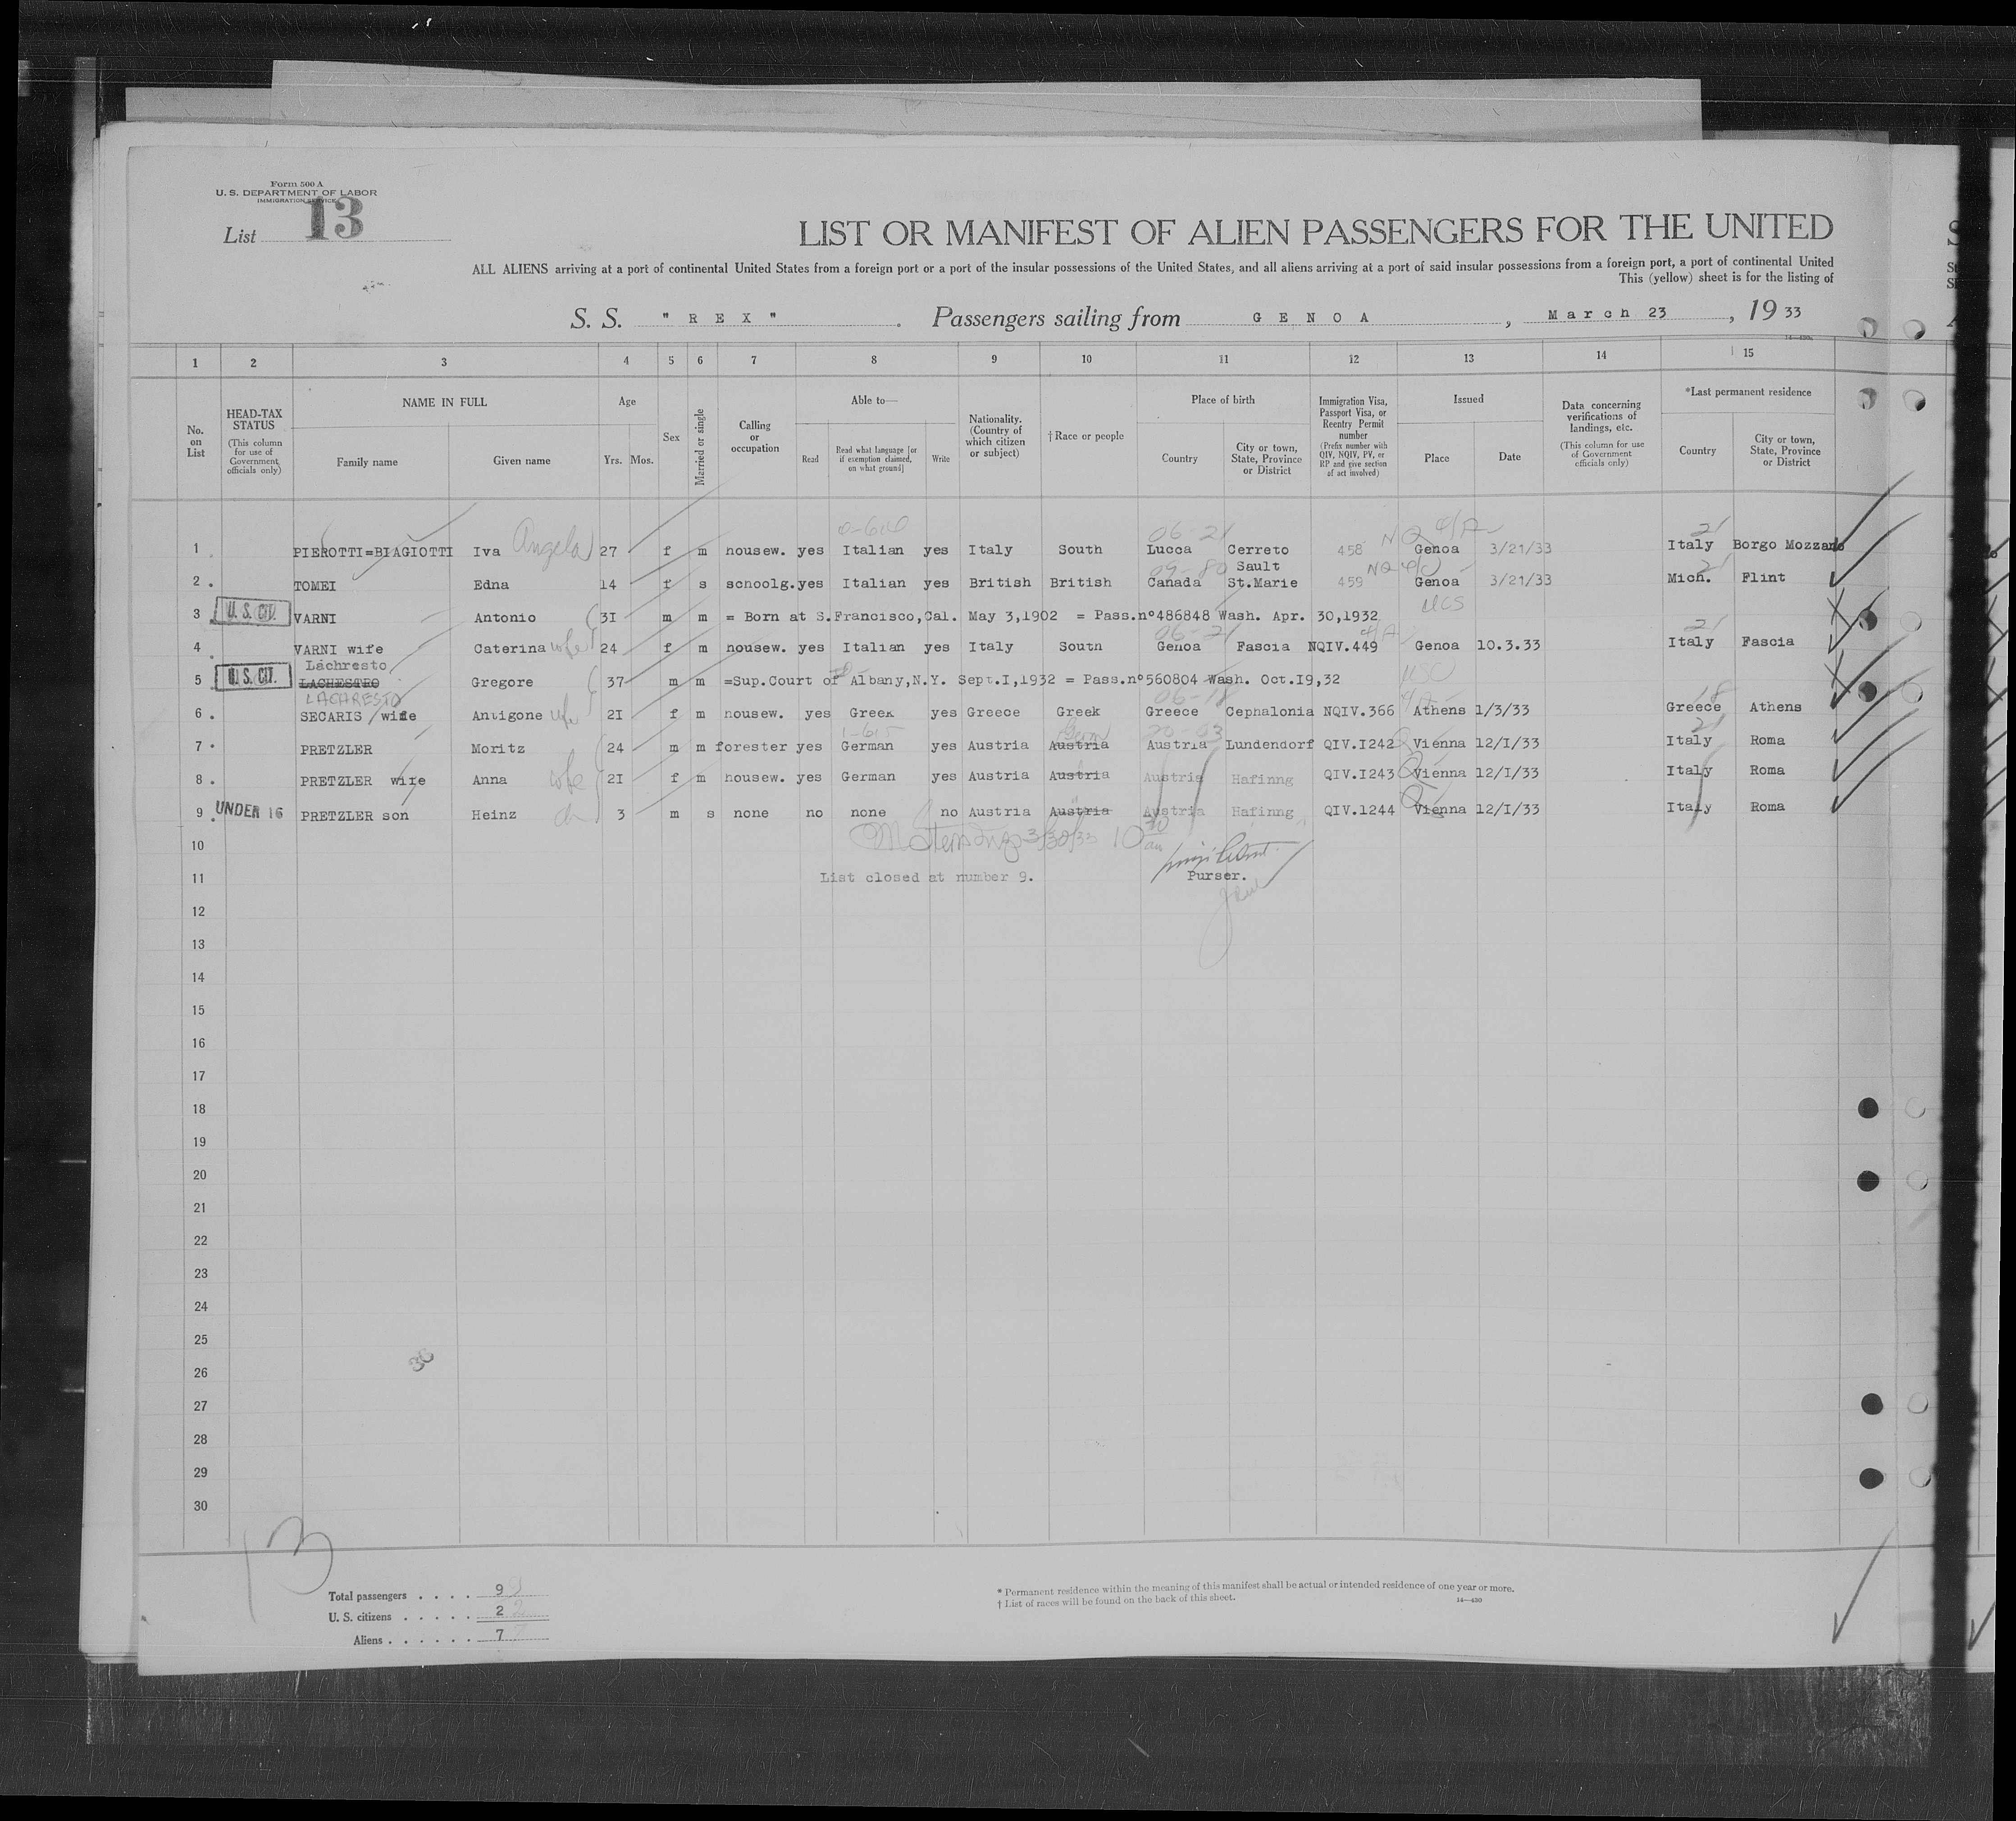 Form 500 A
U. S. DEPARTMENT OF LABOR
IMMIGRATION SERVICE
List 13
LIST OR MANIFEST OF ALIEN PASSENGERS FOR THE UNITED
ALL ALIENS arriving at a port of continental United States from a foreign port or a port of the insular possessions of the United States, and all aliens arriving at a port of said insular possessions from a foreign port, a port of continental United
This (yellow) sheet is for the listing of
S. S. " R E X " . Passengers sailing from G E N O A , March 23 , 19 33
1 2 3 4 5 6 7 8 9 10 11 12 13 14 15
No. on List
HEAD-TAX STATUS (This column for use of Government officials only)
NAME IN FULL Family name Given name
Age Yrs. Mos.
Sex
Married or single
Calling or occupation
Able to— Read Read what language [or if exemption claimed, on what ground] Write
Nationality. (Country of which citizen or subject)
† Race or people
Place of birth Country City or town, State, Province or District
Immigration Visa, Passport Visa, or Reentry Permit number (Prefix number with QIV, NQIV, PV, or RP and give section of act involved)
Issued Place Date
Data concerning verifications of landings, etc. (This column for use of Government officials only)
*Last permanent residence Country City or town, State, Province or District
06-21 NQ 21
1 PIEROTTI=BIAGIOTTI Iva Angela 27 f m housew. yes Italian yes Italy South Lucca Cerreto 458 Genoa 3/21/33 Italy Borgo Mozzano
Sault
2 TOMEI Edna 14 f s schoolg. yes Italian yes British British Canada St.Marie 459 Genoa 3/21/33 Mich. Flint
3 U. S. CIT. VARNI Antonio 3I m m = Born at S.Francisco,Cal. May 3,1902 = Pass.n°486848 Wash. Apr. 30,1932
06-21 21
4 VARNI wife Caterina wife 24 f m housew. yes Italian yes Italy South Genoa Fascia NQIV.449 Genoa 10.3.33 Italy Fascia
Lachresto
5 U. S. CIT. LACHESTRO Gregore 37 m m =Sup.Court of Albany,N.Y. Sept.I,1932 = Pass.n°560804 Wash. Oct.I9,32 USC
LACHRESTO 06-18 18
6 SECARIS wife Antigone wife 2I f m housew. yes Greek yes Greece Greek Greece Cephalonia NQIV.366 Athens 1/3/33 Greece Athens
1-615 21
7 PRETZLER Moritz 24 m m forester yes German yes Austria Austria Austria Lundendorf QIV.I242 Vienna 12/I/33 Italy Roma
8 PRETZLER wife Anna wife 2I f m housew. yes German yes Austria Austria Austria Hafinng QIV.I243 Vienna 12/I/33 Italy Roma
9 UNDER 16 PRETZLER son Heinz 3 m s none no none no Austria Austria Austria Hafinng QIV.1244 Vienna 12/I/33 Italy Roma
10
11 List closed at number 9. Purser.
12
13
14
15
16
17
18
19
20
21
22
23
24
25
26
27
28
29
30
36
13
Total passengers . . . . . 9
U. S. citizens . . . . . . 2
Aliens . . . . . . 7
* Permanent residence within the meaning of this manifest shall be actual or intended residence of one year or more.
† List of races will be found on the back of this sheet.
14—430